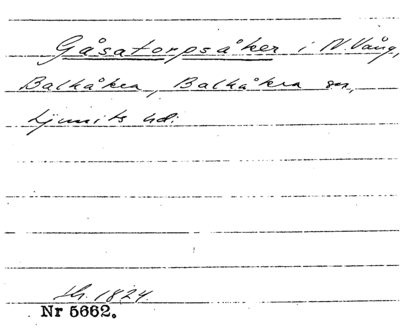 Gåsatorpsåker i N Vång,
Balkåkra, Balkåkra sn,
Ljunits hd.
1824.
Nr 5662.